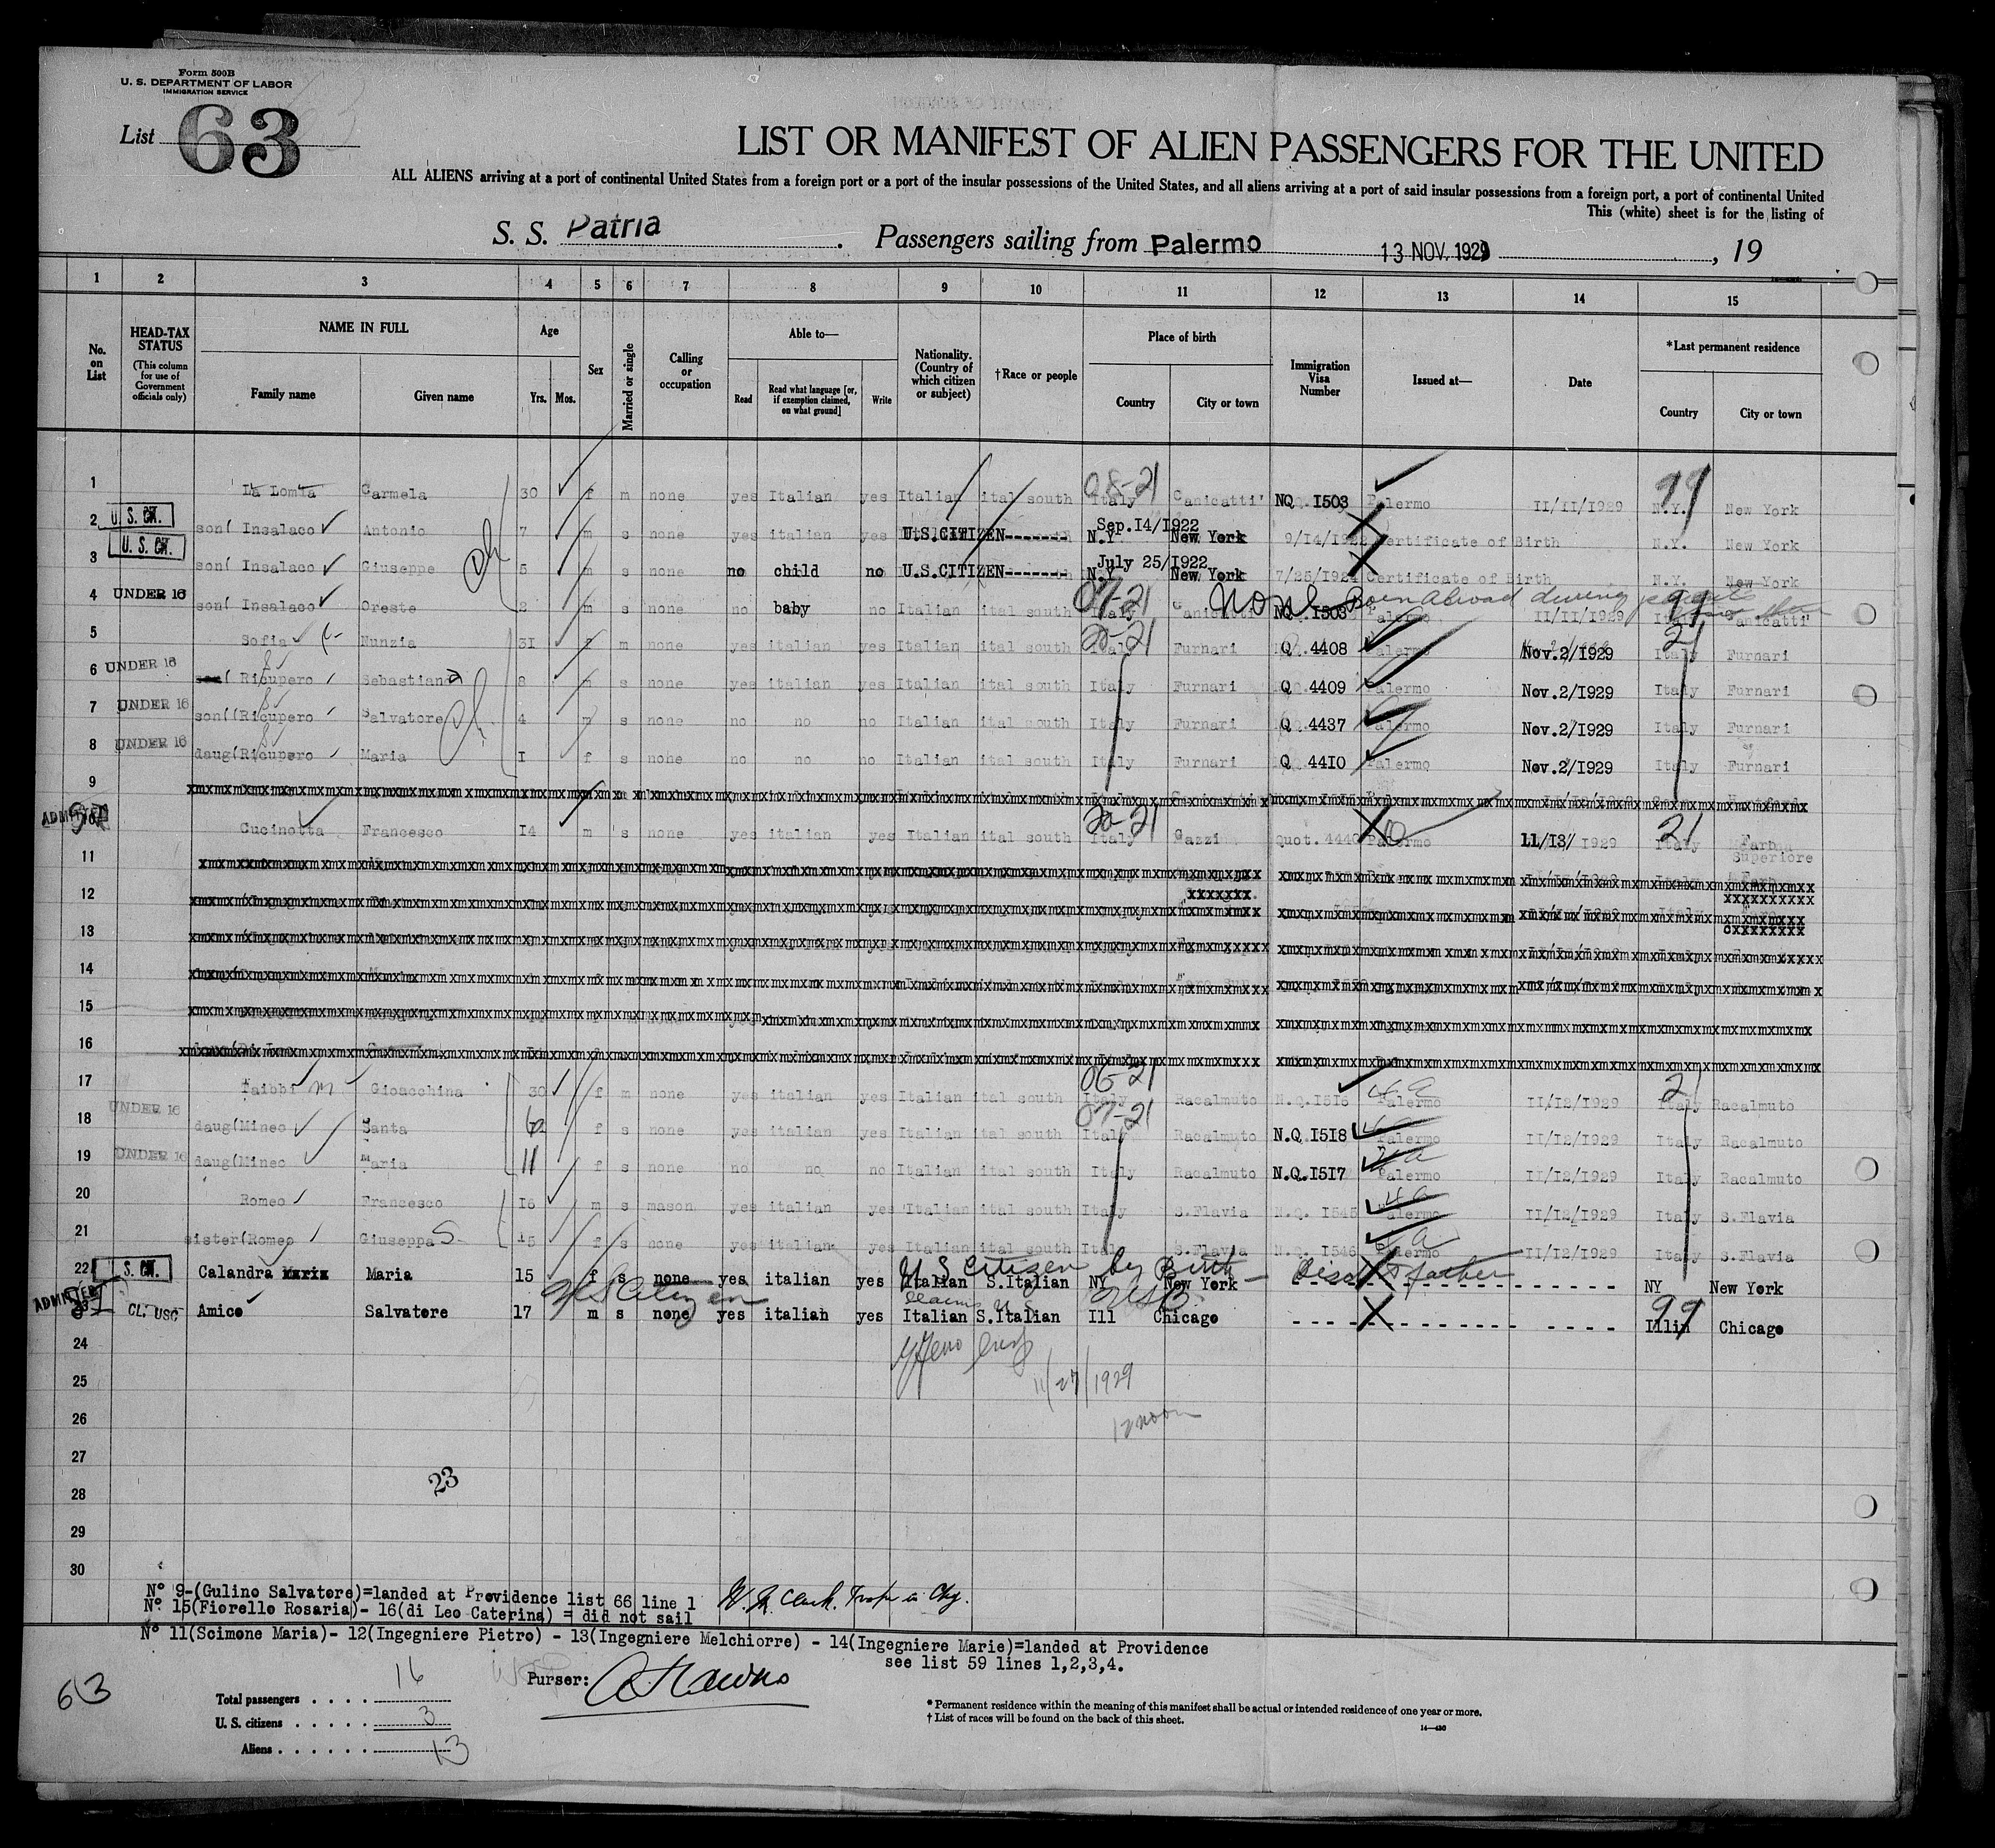 Form 500B
U. S. DEPARTMENT OF LABOR
IMMIGRATION SERVICE
List 63
LIST OR MANIFEST OF ALIEN PASSENGERS FOR THE UNITED
ALL ALIENS arriving at a port of continental United States from a foreign port or a port of the insular possessions of the United States, and all aliens arriving at a port of said insular possessions from a foreign port, a port of continental United
This (white) sheet is for the listing of
S. S. Patria . Passengers sailing from Palermo 13 NOV. 1929 , 19
1 2 3 4 5 6 7 8 9 10 11 12 13 14 15
No. on List
HEAD-TAX STATUS (This column for use of Government officials only)
NAME IN FULL
Family name Given name
Age
Yrs. Mos.
Sex
Married or single
Calling or occupation
Able to—
Read Read what language [or, if exemption claimed, on what ground] Write
Nationality. (Country of which citizen or subject)
†Race or people
Place of birth
Country City or town
Immigration Visa Number
Issued at—
Date
*Last permanent residence
Country City or town
1 La Lomia Carmela 30 f m none yes Italian yes Italian ital south 08-21 Italy Canicatti' NQ 1503 Palermo 11/11/1929 99 N.Y. New York
2 U. S. CIT. son( Insalaco Antonio 7 m s none yes italian yes U.S.CITIZEN------- Sep.14/1922 N.Y New York 9/14/1922 Certificate of Birth N.Y. New York
3 U. S. CIT. son( Insalaco Giuseppe 5 m s none no child no U.S.CITIZEN------- July 25/1922 N.Y New York 7/25/1924 Certificate of Birth N.Y. New York
4 UNDER 16 son( Insalaco Oreste 2 m s none no baby no Italian ital south 07-21 Italy Canicatti NQ 1303 Palermo 11/11/1929 99 Italy Canicatti'
None Born Abroad during parents
5 Sofia Nunzia 31 f m none yes italian yes Italian ital south 20-21 Italy Furnari Q 4408 Palermo Nov.2/1929 21 Italy Furnari
6 UNDER 16 son( Ricupero Sebastiano 8 m s none yes italian yes Italian ital south Italy Furnari Q 4409 Palermo Nov.2/1929 Italy Furnari
7 UNDER 16 son( (Ricupero Salvatore 4 m s none no no no Italian ital south Italy Furnari Q 4437 Palermo Nov.2/1929 Italy Furnari
8 UNDER 16 daug(Ricupero Maria 1 f s none no no no Italian ital south Italy Furnari Q 4410 Palermo Nov.2/1929 Italy Furnari
9
10 ADMITTED Cucinotta Francesco 14 m s none yes italian yes Italian ital south 20-21 Italy Gazzi Quot. 4440 Palermo 11/13/1929 21 Italy Faro Superiore
11
12
13
14
15
16
17 Taibbi Gioacchina 30 f m none yes italian yes Italian ital south 06-21 Italy Racalmuto N.Q.1515 Palermo 11/12/1929 21 Italy Racalmuto
18 UNDER 16 daug(Mineo Santa f s none yes italian yes Italian ital south 07-21 Italy Racalmuto N.Q.1518 Palermo 11/12/1929 Italy Racalmuto
19 UNDER 16 daug(Mineo Maria 11 f s none no no no Italian ital south Italy Racalmuto N.Q.1517 Palermo 11/12/1929 Italy Racalmuto
20 Romeo Francesco 16 m s mason yes italian yes Italian ital south Italy S.Flavia N.Q. 1545 Palermo 11/12/1929 Italy S.Flavia
21 sister(Romeo Giuseppa S 15 f s none yes italian yes Italian ital south Italy S.Flavia N.Q. 1546 Palermo 11/12/1929 Italy S.Flavia
U S Citizen by Birth - father
22 U. S. CIT. Calandra Maria 15 f s none yes italian yes Italian S.Italian NY New York NY New York
US Citizen claims U S USB
23 ADMITTED CL. USC Amico Salvatore 17 m s none yes italian yes Italian S.Italian Ill Chicago 99 Illin Chicago
24
25 11/27/1929
26 12 noon
27
28 23
29
30
No 9-(Gulino Salvatore)=landed at Providence list 66 line 1
No. 15(Fiorello Rosaria)- 16(di Leo Caterina) = did not sail
No 11(Scimone Maria)- 12(Ingegniere Pietro) - 13(Ingegniere Melchiorre) - 14(Ingegniere Marie)=landed at Providence
see list 59 lines 1,2,3,4.
63
Purser:
Total passengers . . . . 16
U. S. citizens . . . . . 3
Aliens . . . . . . 13
* Permanent residence within the meaning of this manifest shall be actual or intended residence of one year or more.
† List of races will be found on the back of this sheet.
14—430